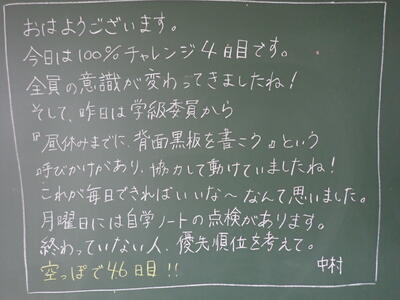 おはようございます。
今日は100%チャレンジ4日目です。
全員の意識が変わってきましたね!
そして、昨日は学級委員から
『昼休みまでに、背面黒板を書こう』という
呼びかけがあり、協力して動けていましたね!
これが毎日できればいいな〜なんて思いました。
月曜日には自学ノートの点検があります。
終わっていない人、優先順位を考えて。
空っぽで46日目!!
中村